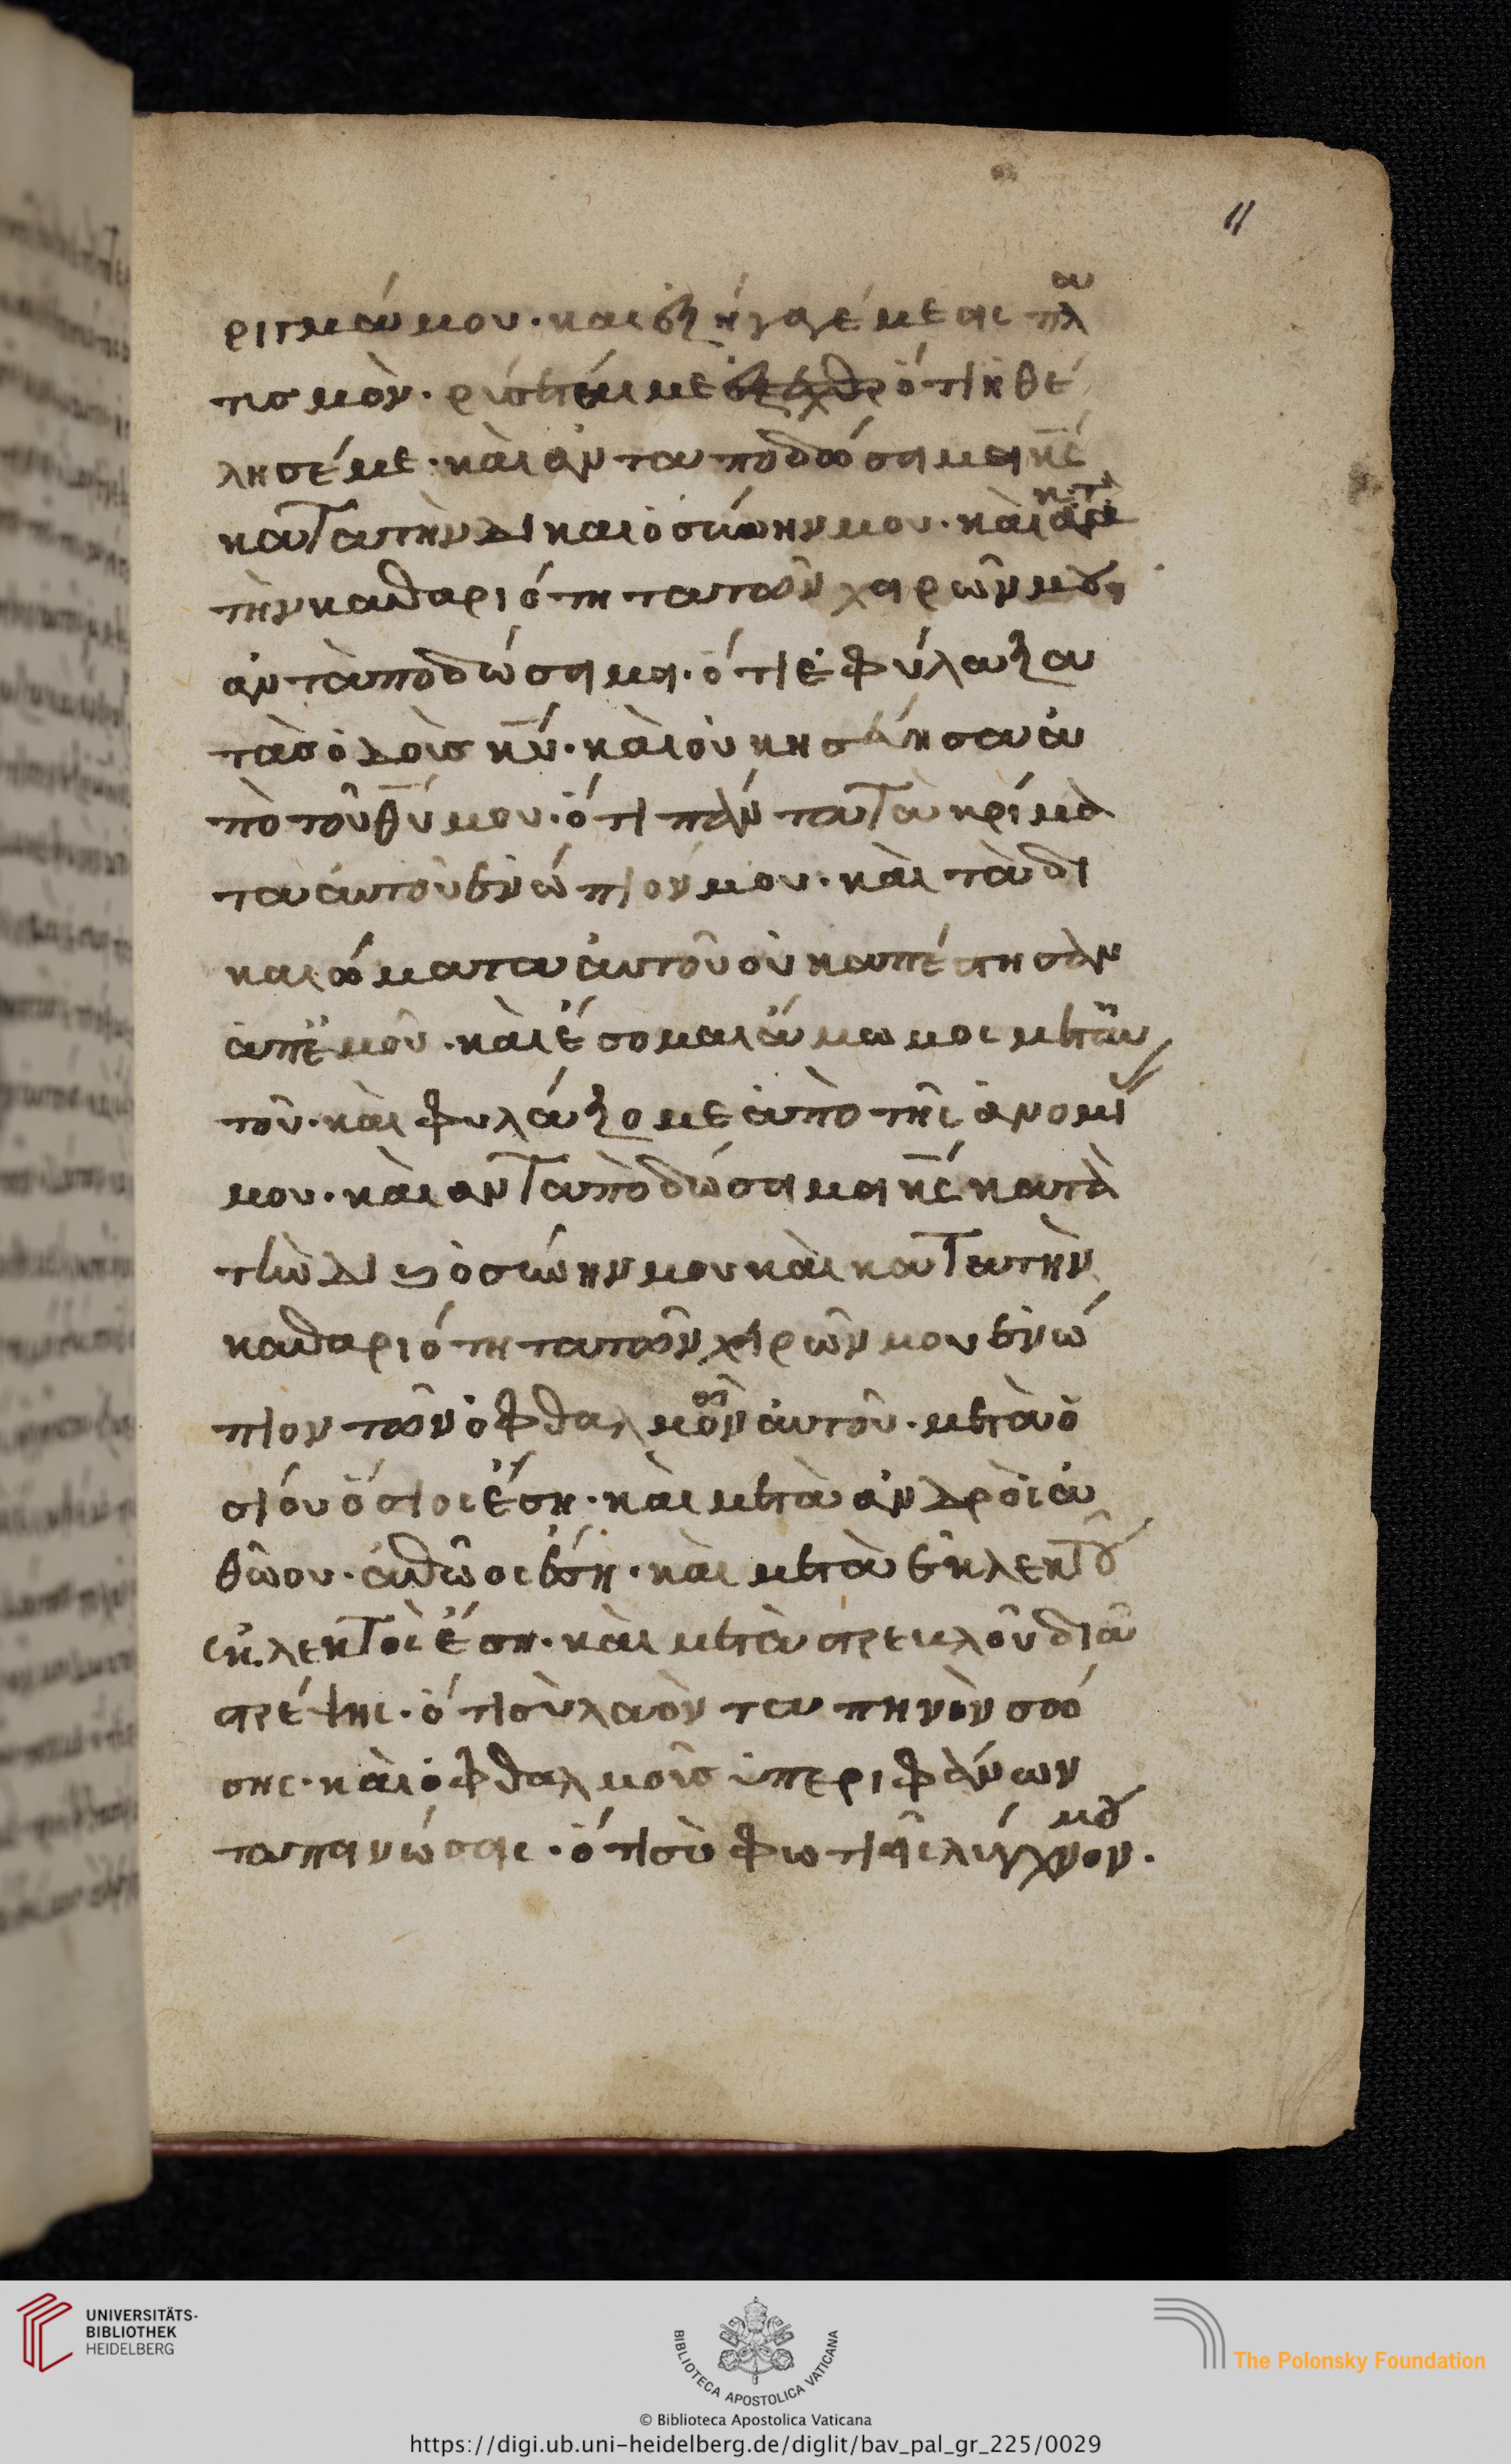 11
ριγμά μου· καὶ ἐξήγαγέ με εἰς πλα
τισμὸν· ρύσεται με ὅτι ἠθέ
λησέ με· καὶ ἀνταποδώσει μοι κς
κατα τὴν δικαιοσύνην μου· καὶ κατὰ
τὴν καθαριότητα τῶν χειρῶν μου
ἀνταποδώσει μοι· ὅτι ἐφύλαξα
τὰς ὁδοὺς κυ· καὶ οὐκ ησέβησα ἀ
πὸ τοῦ θυ μου· ὅτι πάντα τὰ κρίμα
τα αὐτοῦ ἐνώπιόν μου· καὶ τὰ δι
καιώματα αὐτοῦ οὐκ απέστησαν
ἀπ' ἐμοῦ· καὶ ἔσομαι ἄμωμος μετ' αυ
τοῦ· καὶ φυλάξομε ἀπὸ τῆς ἀνομί
μου· καὶ ανταποδώσει μοι κς κατὰ
τὴν δικαιοσύνην μου καὶ κατα τὴν
καθαριότητα τῶν χειρῶν μου ἐνώ
πιον τῶν ὀφθαλμῶν αὐτοῦ· μετὰ ὁ
σίου ὅσιος ἔση· καὶ μετὰ ἀνδρὸς ἀ
θῶου· ἀθῶος ἔση· καὶ μετὰ ἐκλεκτοῦ
ἐκλεκτὸς ἔση· καὶ μετὰ στρεβλοῦ δια
στρέψης· ὅτι σὺ λαὸν ταπηνὸν σώ
σης· καὶ ὀφθαλμοὺς ὑπεριφάνων
ταπεινώσεις· ὅτι σὺ φωτιεῖς λύχνον μου·
UNIVERSITÄTS-
BIBLIOTHEK
HEIDELBERG
BIBLIOTECA APOSTOLICA VATICANA
The Polonsky Foundation
© Biblioteca Apostolica Vaticana
https://digi.ub.uni-heidelberg.de/diglit/bav_pal_gr_225/0029